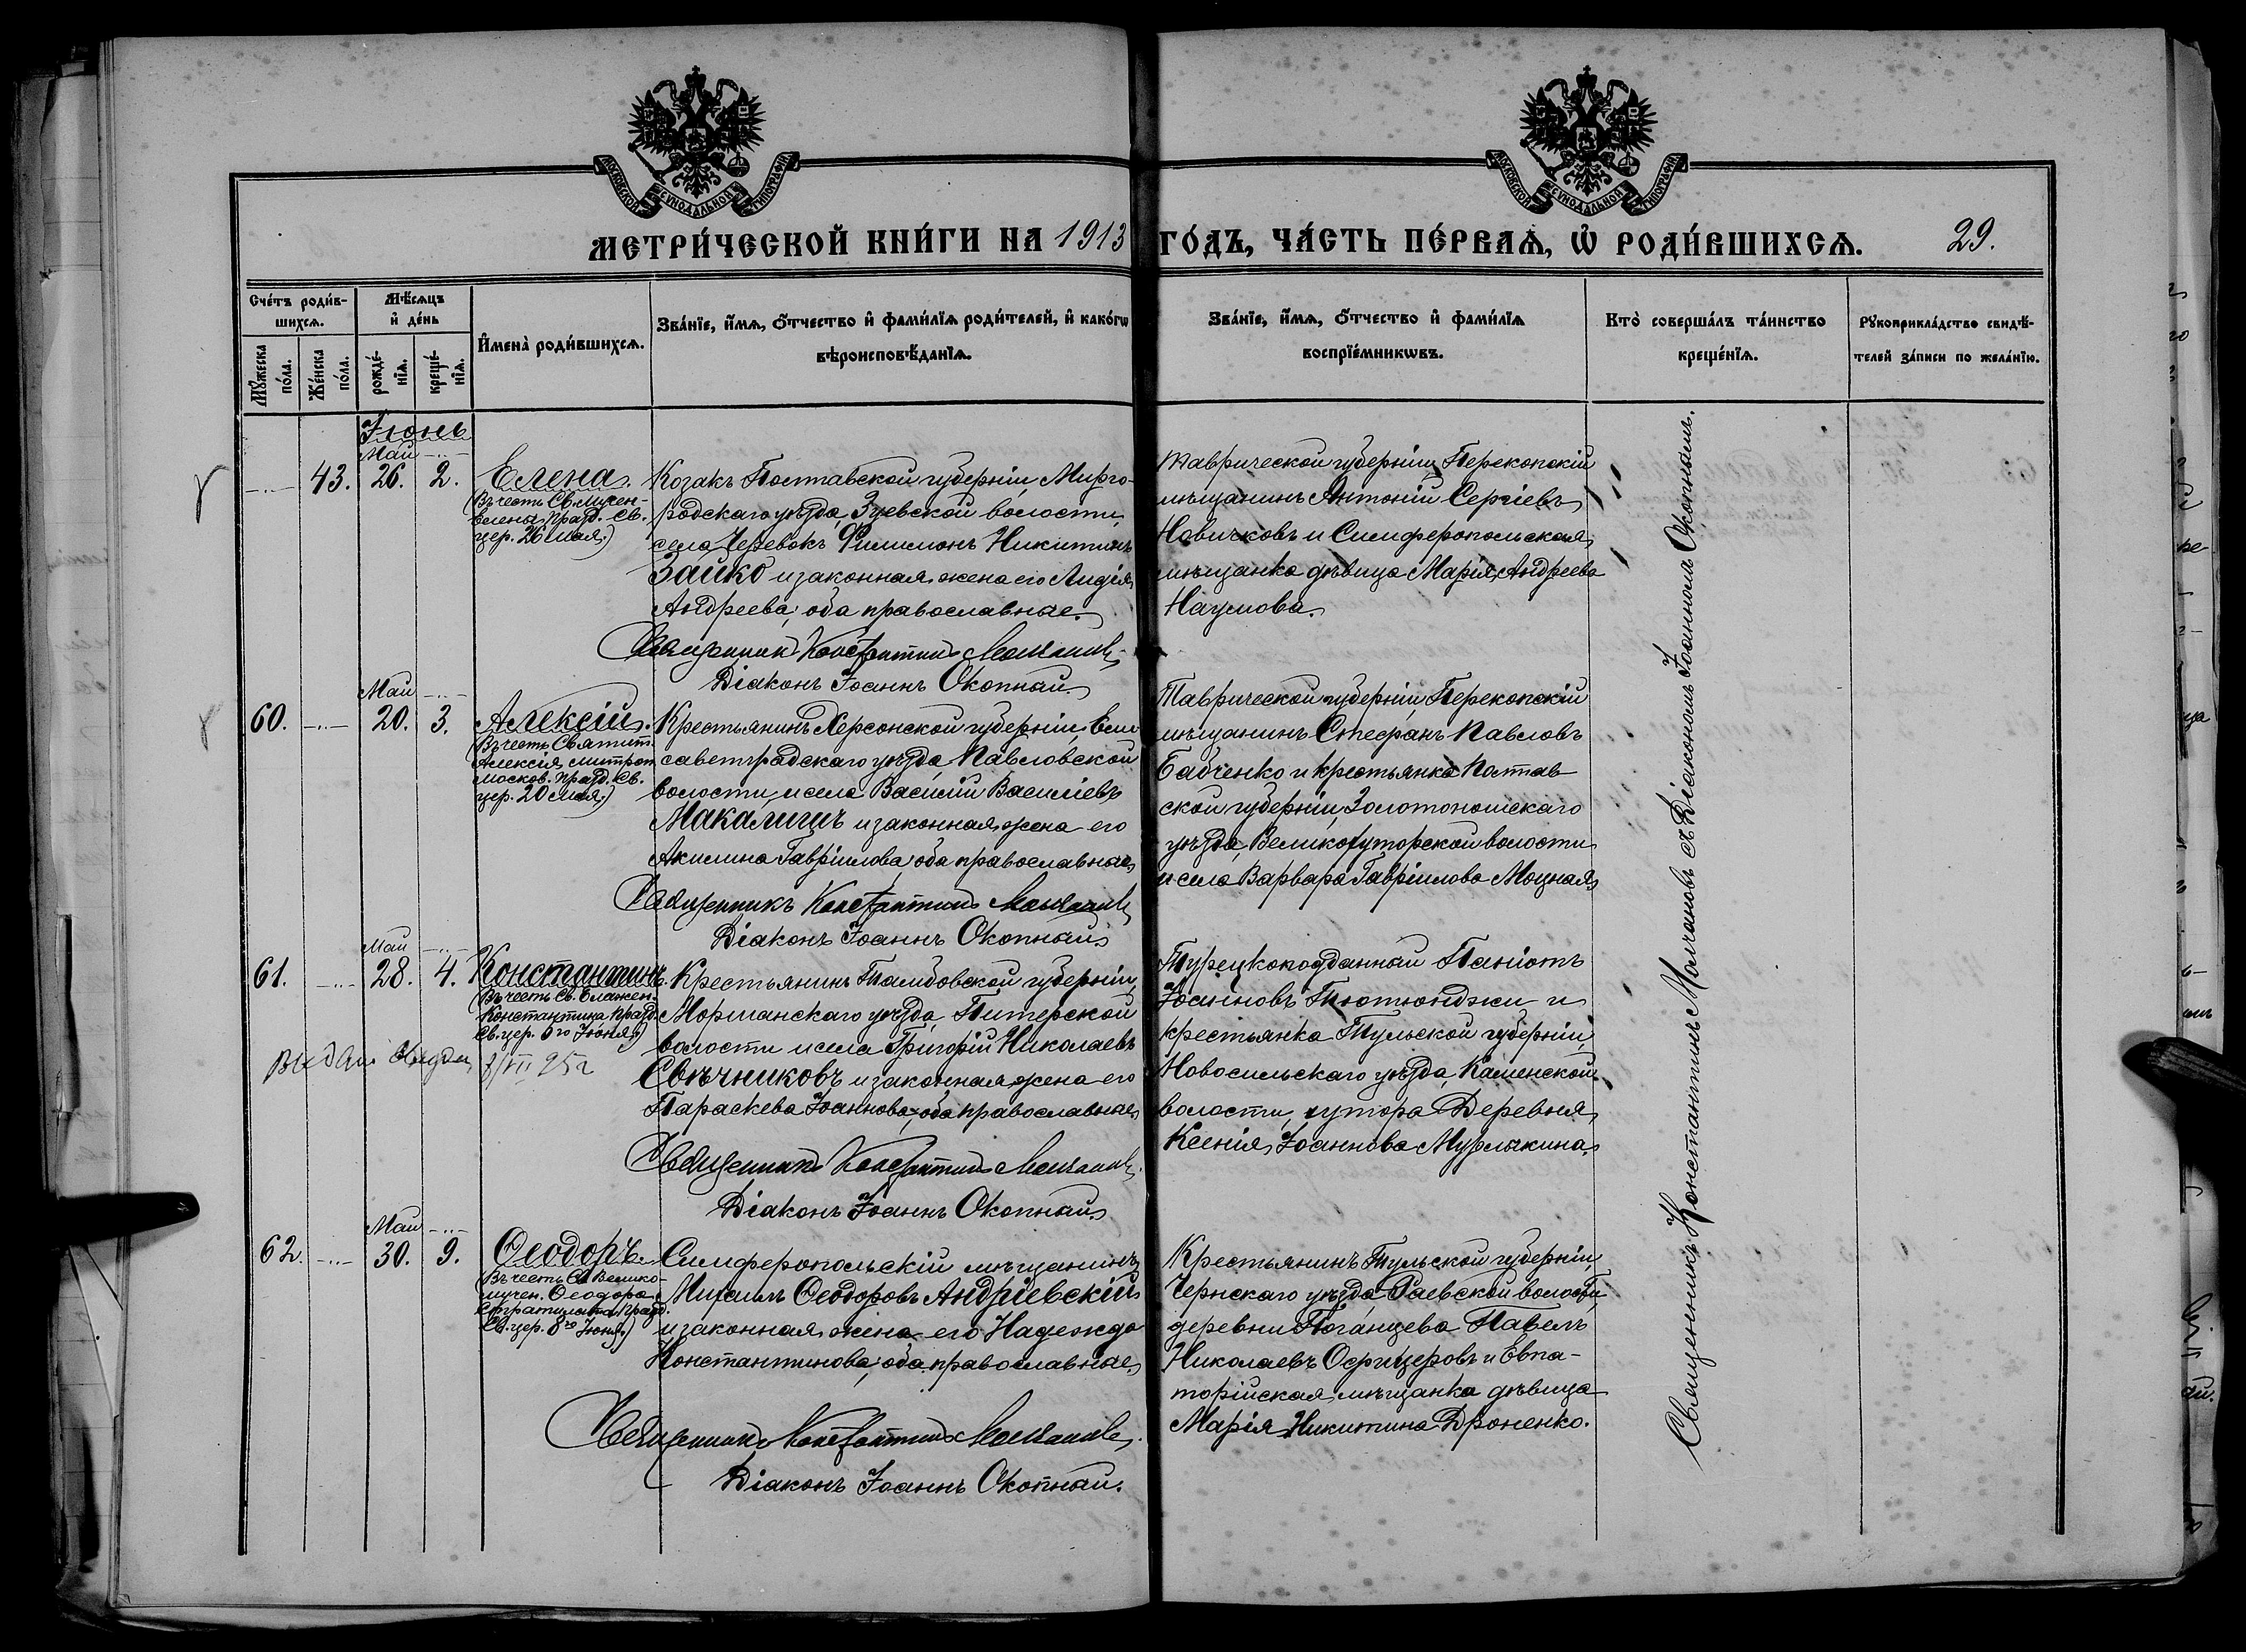 МОСКОВСКОЙ СѴНОДАЛЬНОЙ ТИПОГРАФІИ
МОСКОВСКОЙ СѴНОДАЛЬНОЙ ТИПОГРАФІИ
МЕТРИ́ЧЕСКОЙ КНИ́ГИ НА 1913 ГО́ДЪ, ЧА́СТЬ ПЕ́РВАѦ, Ѡ҆ РОДИ́ВШИХСѦ. 29.
Сче́тъ роди́в-
шихсѧ.
Мꙋ́жеска по́ла.
Же́нска по́ла.
Мѣ́сѧцъ
и҆ де́нь
рожде́-
нїѧ.
креще́-
нїѧ.
И҆мена̀ роди́вшихсѧ.
Зва́нїе, и҆́мѧ, ѻ҆́тчество и҆ фами́лїѧ роди́телей, и҆ како́гѡ
вѣроисповѣ́данїѧ.
Зва́нїе, и҆́мѧ, ѻ҆́тчество и҆ фами́лїѧ
воспрїе́мникѡвъ.
Кто̀ соверша́лъ та́инство
креще́нїѧ.
Рꙋкоприкла́дство свидѣ́-
телей за́писи по жела́нїю.
Іюнь
Май
43. 26. 2.
Елена.
(Въ честь Св. мучен-
Елены, празд. Св.
цер. 26 мая.)
Козакъ Полтавской губерніи, Мирго-
родскаго уѣзда, Зуевской волости,
села Черевокъ Филимонъ Никитинъ
Зайко и законная жена его Лидія
Андреева, оба православные.
Священникъ Константинъ Молчановъ
Діаконъ Іоаннъ Окопный.
Таврической губерніи, Перекопскій
мѣщанинъ Антоній Сергіевъ
Новичковъ и Симферопольская
мѣщанка дѣвица Марія Андреева
Наумова.
Май
60. 20. 3.
Алексій.
(Въ честь Святит.
Алексія, митроп.
москов. празд. Св.
цер. 20 мая.)
Крестьянинъ Херсонской губерніи, Ели-
саветградскаго уѣзда, Павловской
волости и села Василій Василіевъ
Макалишъ и законная жена его
Акилина Гавріилова, оба православные
Священникъ Константинъ Молчановъ
Діаконъ Іоаннъ Окопный.
Таврической губерніи, Перекопскій
мѣщанинъ Стефанъ Павловъ
Бабченко и крестьянка Полтав-
ской губерніи, Золотоношскаго
уѣзда, Великохуторской волости
и села Варвара Гавріилова Моцная
Май
61. 28. 4.
Константинъ.
(Въ честь Св. Блажен.
Константина, празд.
Св. цер. 3го Іюня.)
Крестьянинъ Тамбовской губерніи,
Моршанскаго уѣзда, Питерской
волости и села Григорій Николаевъ
Свѣчниковъ и законная жена его
Параскева Іоаннова, оба православные
Священникъ Константинъ Молчановъ
Діаконъ Іоаннъ Окопный.
Турецкоподданный Паніотъ
Іоанновъ Тютюнджи и
крестьянка Тульской губерніи,
Новосильскаго уѣзда, Каменской
волости, хутора Деревня,
Ксенія Іоаннова Мурлыкина.
Май
62. 30. 9.
Ѳеодоръ.
(Въ честь Св. Велико-
мучен. Ѳеодора
Стратилата, празд.
Св. цер. 8го Іюня.)
Симферопольскій мѣщанинъ
Михаилъ Ѳеодоровъ Андріевскій
и законная жена его Надежда
Константинова, оба православные
Священникъ Константинъ Молчановъ
Діаконъ Іоаннъ Окопный.
Крестьянинъ Тульской губерніи,
Чернскаго уѣзда, Раевской волости,
деревни Поганцева Павелъ
Николаевъ Офицеровъ и Евпа-
торійская мѣщанка дѣвица
Марія Никитина Дроненко.
Священникъ Константинъ Молчановъ съ Діакономъ Іоанномъ Окопнымъ.